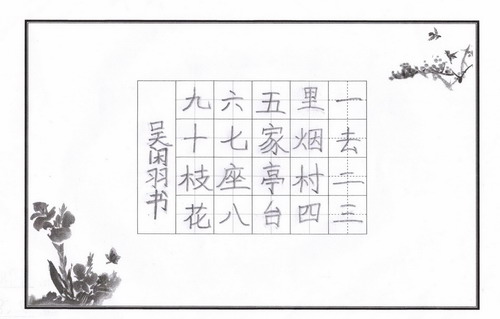 一去二三
里烟村四
五家亭台
六七座八
九十枝花
吴闲羽书